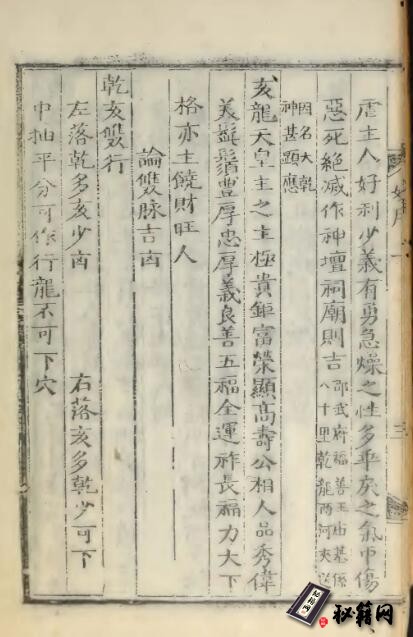 虐主人好利少義有勇急燥之性多乖戾之氣中傷
惡死絕滅作神壇祠廟則吉邵武府福善王出墓係
八十里乾龍兩河夾送
因名大乾
神甚顯應
亥龍天皇主之主極貴鉅富榮顯高壽公相人品秀偉
美髯鬚豐厚忠厚義良善五福全運祚長福力大下
格亦主饒財旺人
論雙脉吉凶
乾亥雙行
左落乾多亥少凶 右落亥多乾少可下
中抽平分可作行龍不可下穴
秘籍网